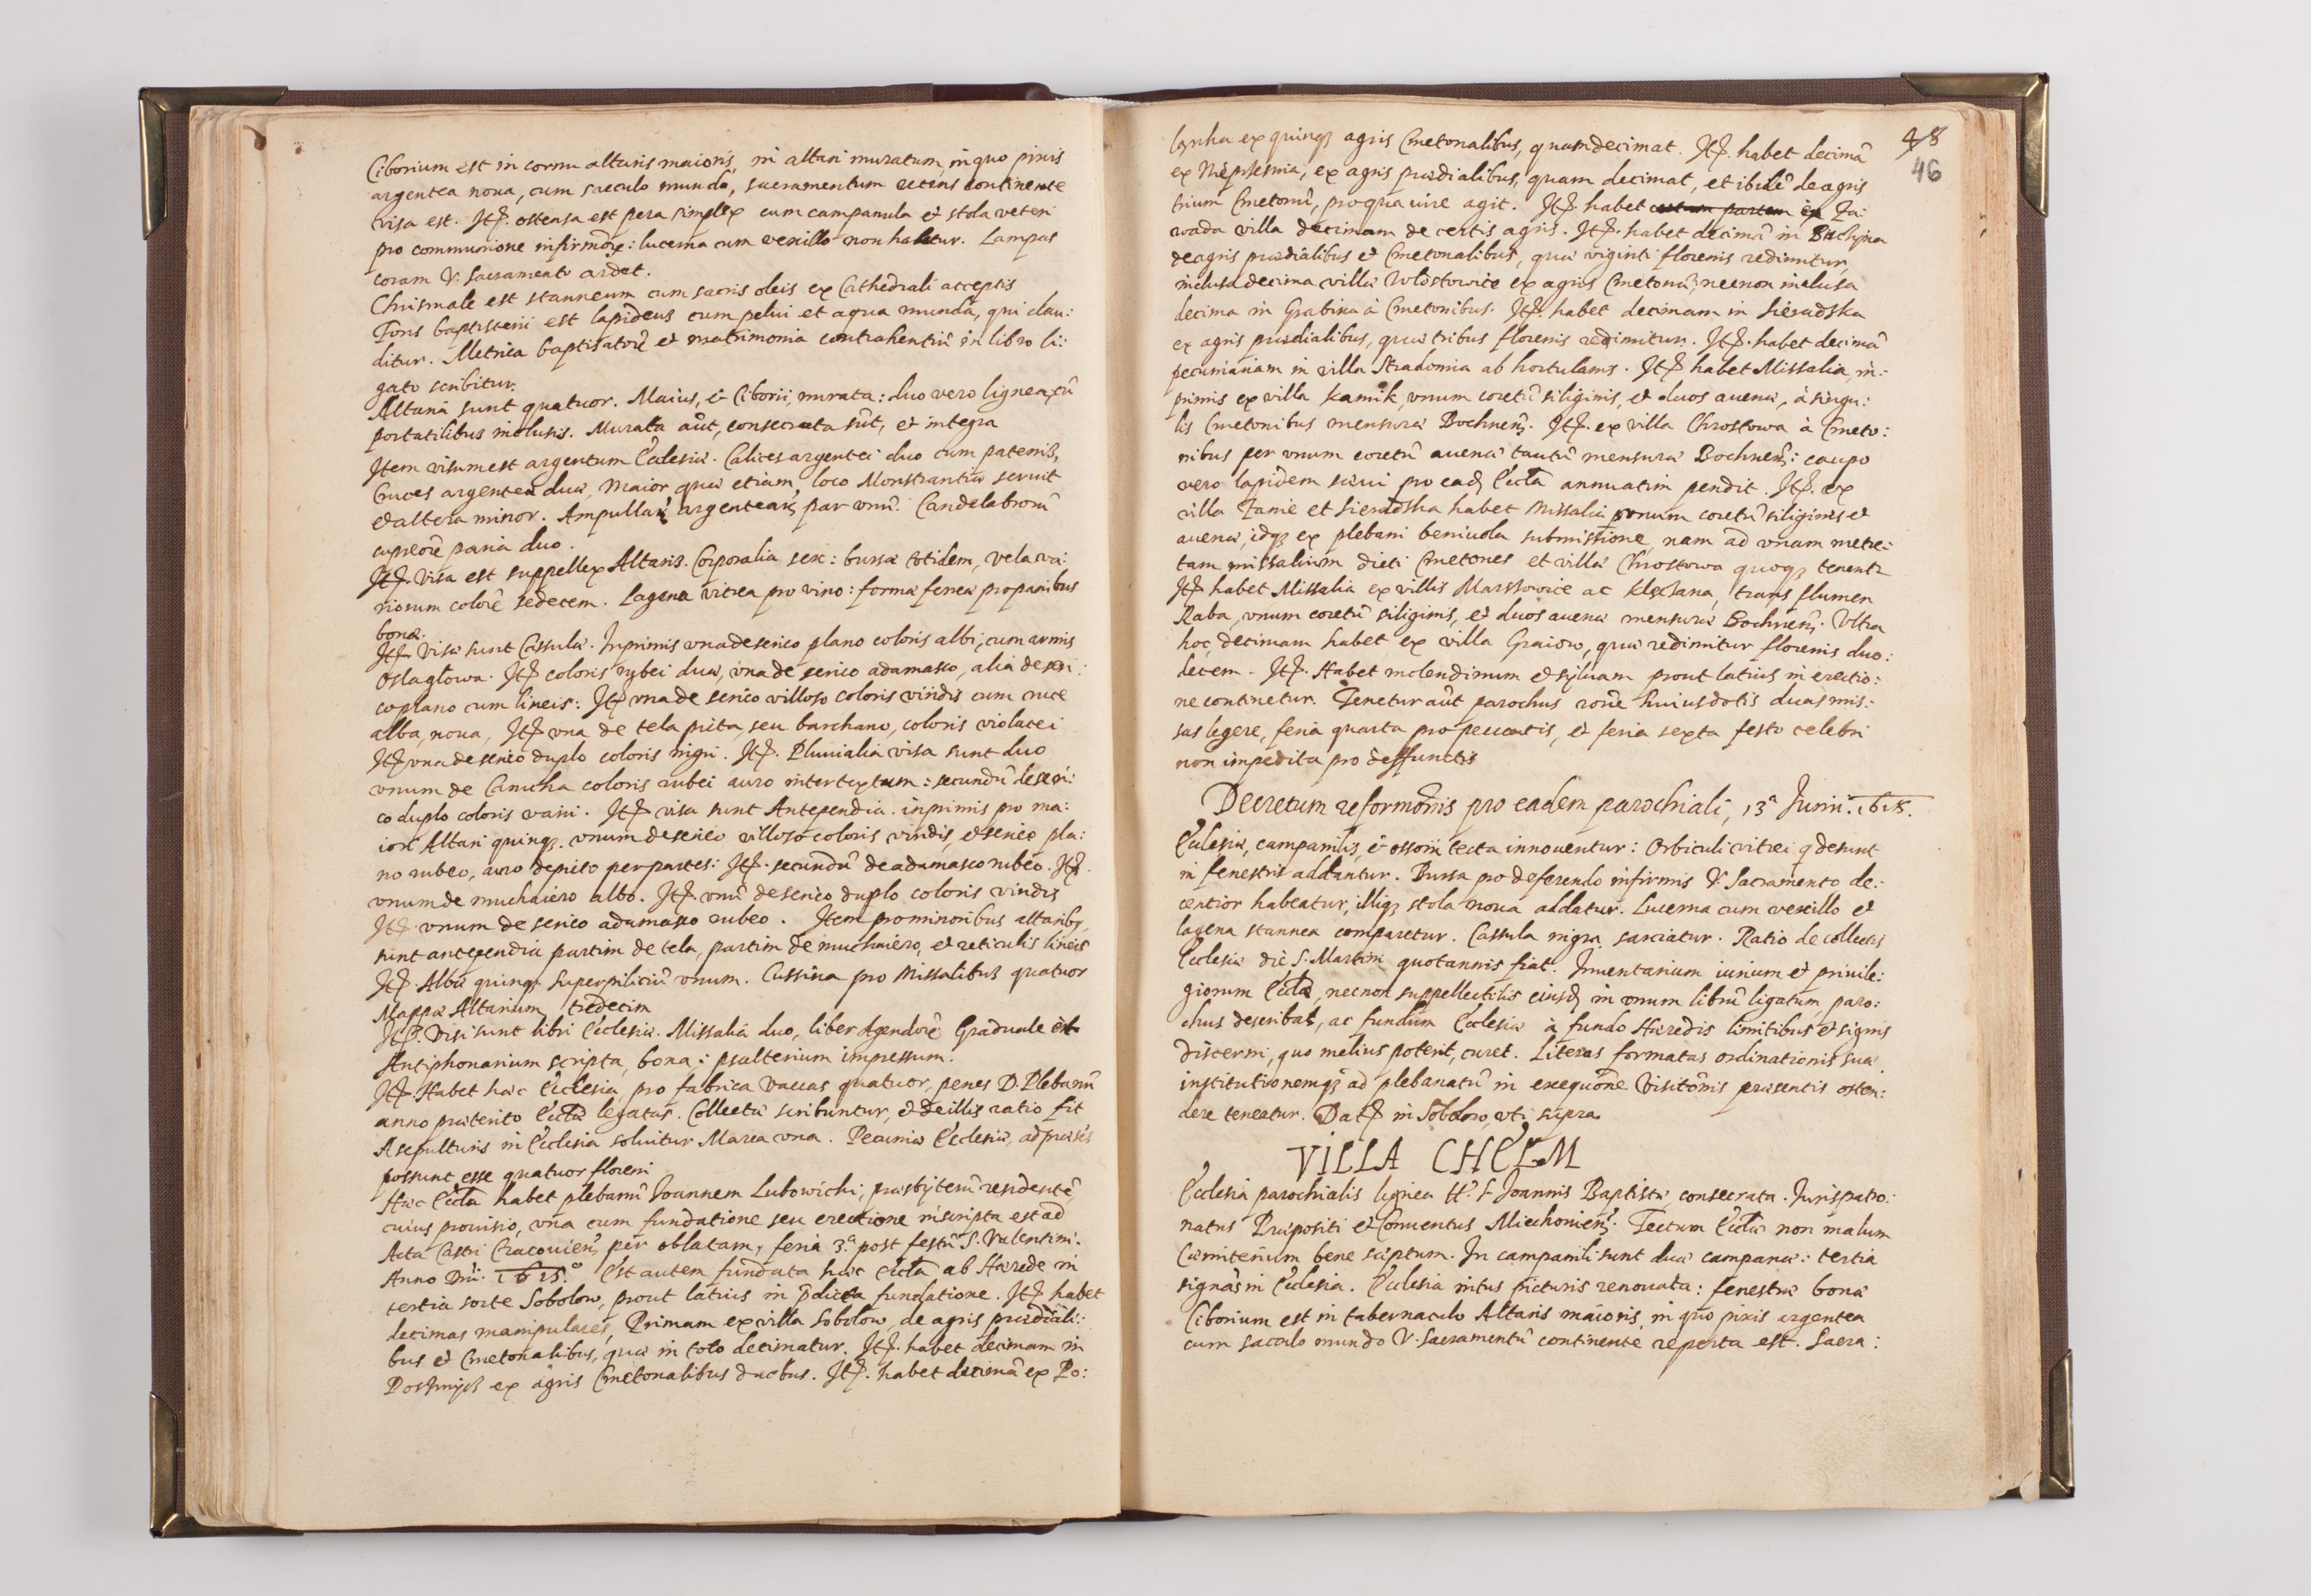 Ciborium est in cornu altaris maioris, in altari muratum, in quo pixis
argentea noua, cum sacculo mundo, sacramentum recens continente
visa est. Itē. ostensa est pera simplex cum campanula et stola veteri
pro communione infirmorȩ: lucerna cum vexillo non habetur. Lampas
coram V. Sacramento ardet.
Chrismale est stanneum cum sacris oleis ex Cathedrali acceptis
Fons baptisterii est lapideus cum pelui et aqua munda, qui clau:
ditur. Metrica baptisatorū et matrimonia contrahentiū in libro li:
gato scribitur.
Altaria sunt quatuor. Maius, & Ciborii, murata: duo vero lignea, cū
portatilibus inclusis. Murata aūt, consecrata sūt, et integra
Item visum est argentum Ecclesiæ. Calices argentei duo cum patenis,
Cruces argenteæ duæ, Maior quæ etiam, loco Monstrantiæ seruit
et altera minor. Ampullarū argentearū par vnū. Candelabrorū
cupreorū paria duo.
Itē. Visa est suppellex Altaris. Corporalia sex: bursæ totidem, vela va:
riorum colorū sedecem. Lagena vitrea pro vino: forma ferrea pro panibus
bona.
Itē. Visæ sunt Casulæ. Inprimis vna de serico plano coloris albi, cum armis
Osla głowa. Itē coloris rubei duæ, vna de serico adamasco, alia de seri:
co plano cum lineis: Itē vna de serico villoso coloris viridis cum cruce
alba, noua, Itē vna de tela picta, seu barchano, coloris violacei
Itē vna de serico duplo coloris nigri. Itē. Pluuialia visa sunt duo
vnum de Canicha coloris rubei auro intertextum: secundū de seri:
co duplo coloris varii. Itē visa sunt Antependia. inprimis pro ma:
iori Altari quinqȝ. vnum de serico villoso coloris viridis, et serico pla:
no rubeo, auro depicto per partes: Itē. secundū de adamasco rubeo. Itē.
vnum de muchaiero albo. Itē. vnū de serico duplo coloris viridis
Itē. vnum de serico adamasco rubeo. Item pro minoribus altaribȝ
sunt antependia partim de tela, partim de muchaiero, et reticulis lineis
Itē. Albæ quinqȝ. Superpiliciū vnum. Cussina pro Missalibus quatuor
Mappæ Altarium tredecim
Itē. Visi sunt libri Ecclesiæ. Missalia duo, liber Agendorū Graduale et
Antiphonarium scripta, bona: psalterium impressum.
Itē. Habet hæc Ecclesia, pro fabrica vaccas quatuor, penes D. Plebanū
anno præterito Ecclæ legatas. Collectæ scribuntur, et de illis ratio fit
A sepulturis in Ecclesia soluitur Marca vna. Pecuniæ Ecclesiæ, ad præsēs
possunt esse quatuor floreni
Hæc Eccla habet plebanū Joannem Lubowicki, præsbyterū residentē,
cuius prouisio, vna cum fundatione seu erectione inscripta est ad
Acta Castri Cracouien̄ per oblatam, feria 3.ª post festū S. Valentini.
Anno Dni. 1615.º Est autem fundata hæc Eccla ab Hærede in
tertia sorte Sobolow, prout latius in p̄dicta fundatione. Itē habet
decimas manipulares, Primam ex villa Sobolow, de agris prædiali:
bus et Cmetonalibus, quæ in toto decimatur. Itē. habet decimam in
ex agris Cmetonalibus duobus. Itē. habet decimā ex Po:
48
46
ex quinqȝ agris Cmetonalibus, quam decimat. Itē. habet decimā
ex agris prædialibus, quam decimat, et ibidē de agris
trium Cmetonū, pro qua iure agit. Itē. habet certam partem ex Za:
wada villa decimam de certis agris. Itē. habet decimā in Buchyna
de agris prædialibus et Cmetonalibus, quæ viginti florenis redimitur,
inclusa decima villæ Włostowice ex agris Cmetonū, necnon inclusa
decima in Grabina à Cmetonibus. Itē. habet decimam in Sieradska
ex agris prædialibus, quæ tribus florenis redimitur. Itē. habet decimā
pecuniariam in villa Stradomia ab hortulanis. Itē habet Missalia, in:
primis ex villa Kamik, vnum coretū siliginis, et duos auenæ, à singu:
lis Cmetonibus mensuræ Bochnen̄. Itē. ex villa Chrostowa à Cmeto:
nibus per vnum coretū auenæ tantū mensuræ Bochnen̄: caupo
vero lapidem saeui pro eadȝ Eccla annuatim pendit. Itē. ex
villa Zanie et Sieradska habet Missalia p vnum coretū siliginis et
auenæ, idqȝ ex plebani beniuola submissione, nam ad vnam metre:
tam missalium dicti Cmetones et villæ Chrostowa quoqȝ tenentr
Itē habet Missalia ex villis Marszowice ac Klęczana, trans flumen
Raba, vnum coretū siliginis, et duos auenæ mensuræ Bochnen̄. Vltra
hoc, decimam habet ex villa Graiow, quæ redimitur florenis duo:
decem. Itē. Habet molendinum et syluam prout latius in erectio:
ne continetur. Tenetur aūt parochus rōne huius dotis duas mis:
sas legere, feria quarta pro peccatis, et feria sexta festo celebri
non impedita pro deffunctis
Decretum reformōnis pro eadem parochiali, 13ª Junii. 1618.
Ecclesiæ, campanilis, & ossorii tecta innouentur: Orbiculi vitrei q desunt
in fenestris addantur. Bursa pro deferendo infirmis V. Sacramento de:
centior habeatur, illiqȝ stola noua addatur. Lucerna cum vexillo et
lagena stannea comparetur. Cassula nigra sarciatur. Ratio de collectis
Ecclesiæ die S. Martini quotannis fiat. Inuentarium iurium et priuile:
giorum Ecclæ, necnon suppellectilis eiusdȝ in vnum librū ligatum, paro:
chus describat, ac fundum Ecclesiæ à fundo Hæredis limitibus et signis
discerni, quo melius poterit, curet. Literas formatas ordinationis suæ
institutionemqȝ ad plebanatū in exequōne Visitōnis præsentis osten:
dere teneatur. Datē in Sobolow, vti supra
VILLA CHEŁM
Ecclesia parochialis lignea ttº. S. Joannis Baptistæ, consecrata. Jurispatro:
natus Præpositi et Conuentus Miechouien̄. Tectum Ecclæ non malum
Cæmiterium bene sæptum. In campanili sunt duæ campanæ: tertia
signās in Ecclesia. Ecclesia intus picturis renouata: fenestræ bonæ
Ciborium est in tabernaculo Altaris maioris, in quo pixis argentea
cum sacculo mundo V. Sacramentū continente reperta est. Sacra: